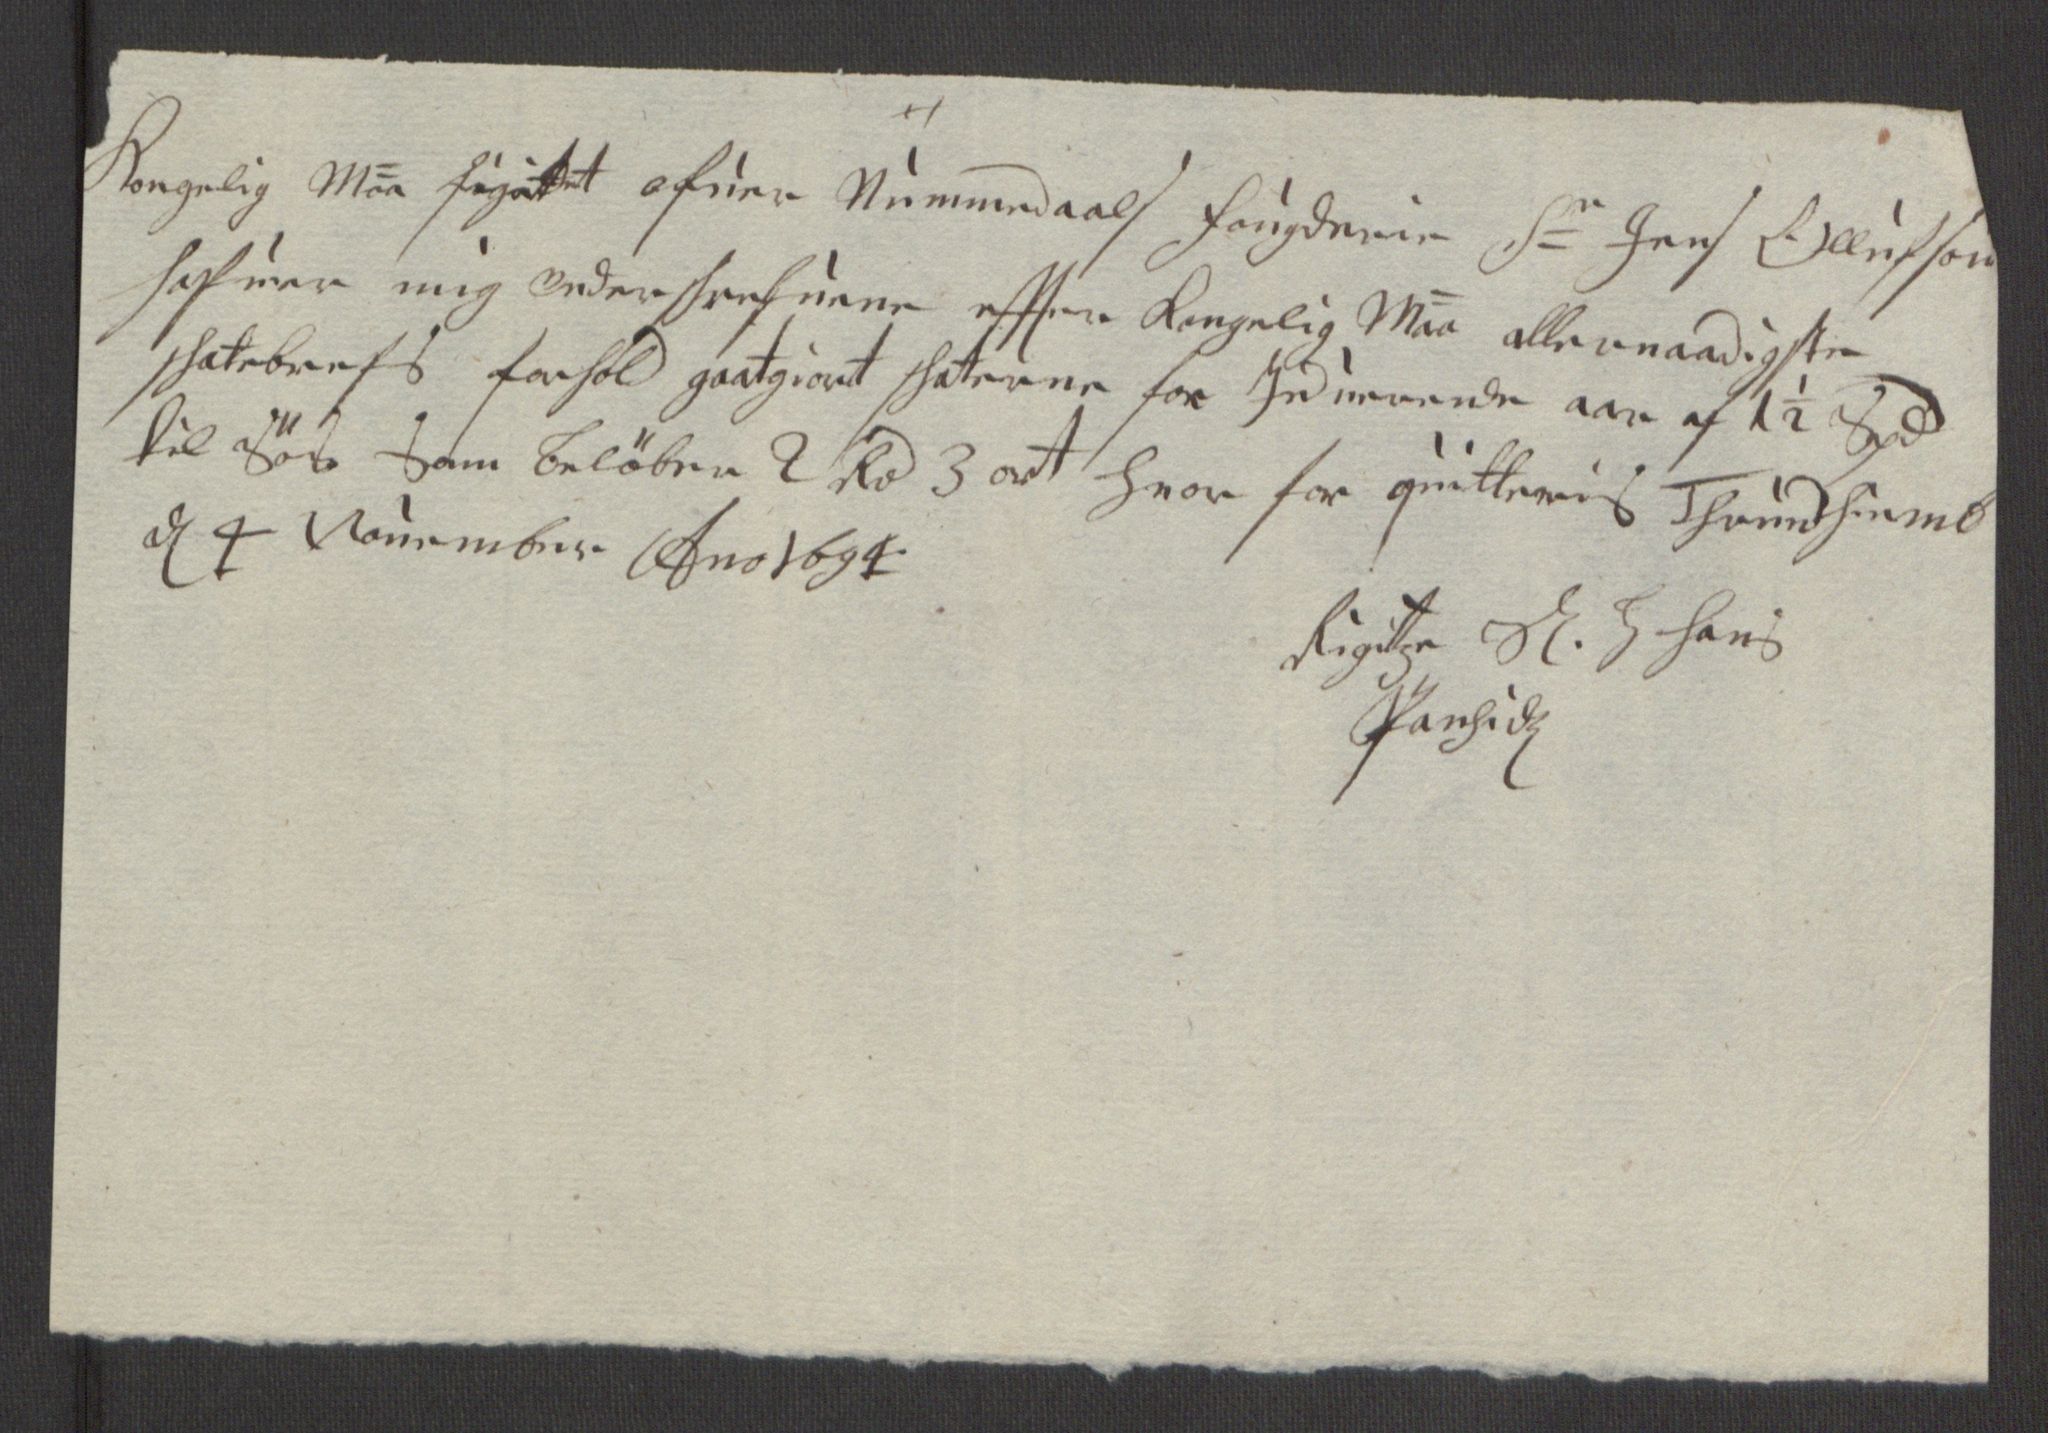 Kongelig Maa fogät ofuer Nummedaals fougderie Sr Jens Ollufsøn
hafuer mig Vnderschrefuene effter Kongelig Maa allernaadigste
schatebrefs forhold gaatgiort schaterne for Indeuerende aar af 1½ Spd
til Som belöber 2 Rd 3 ort huor for quitteris Thrundhiemb
d 4 Nouember Ano 1694
Rigitze S. H hans
Panchidz